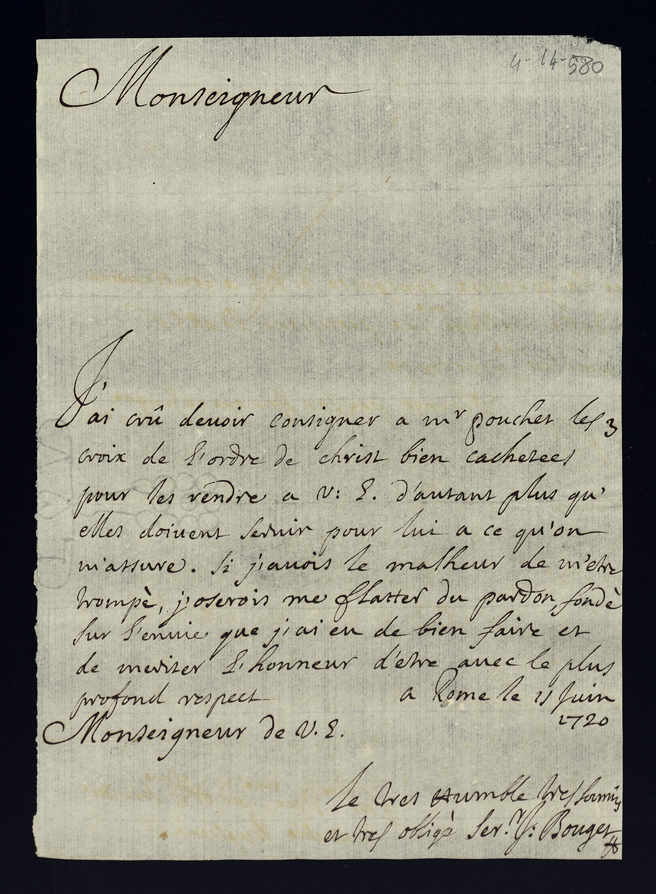 4-14-580
Monseigneur
J'ai crû devoir consigner a mr pouchet les 3
croix de L'ordre de christ bien cachetees
pour les rendre a V: E. d'autant plus qu'
elles doivent servir pour lui a ce qu'on
m'assure. si j'avois le malheur de m'etre
trompè, j'oserois me flatter du pardon, fondè
sur L'envie que j'ai eu de bien faire et
de meriter L'honneur d'etre avec le plus
profond respect a Rome le 11 Juin
1720
Monseigneur de V. E.
Le tres Humble tres soumis
et tres obligè Ser.r Bouget